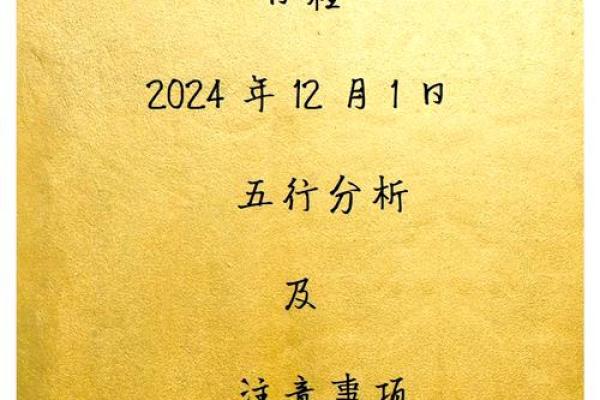 2024 年 12 月 1 日
五行分析
及
注意事项